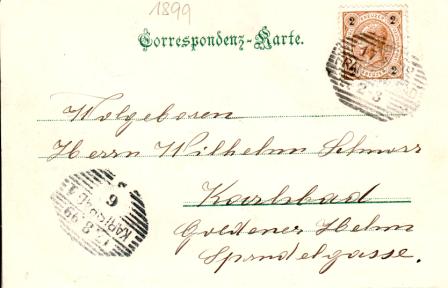 1899
Correspondenz-Karte.
2 2
17
Wolgeboren
Herrn Wilhelm Schnorr
Karlsbad
Goldener Helm
Sprudelgasse.
17 8 99
KARLSBAD 1
6